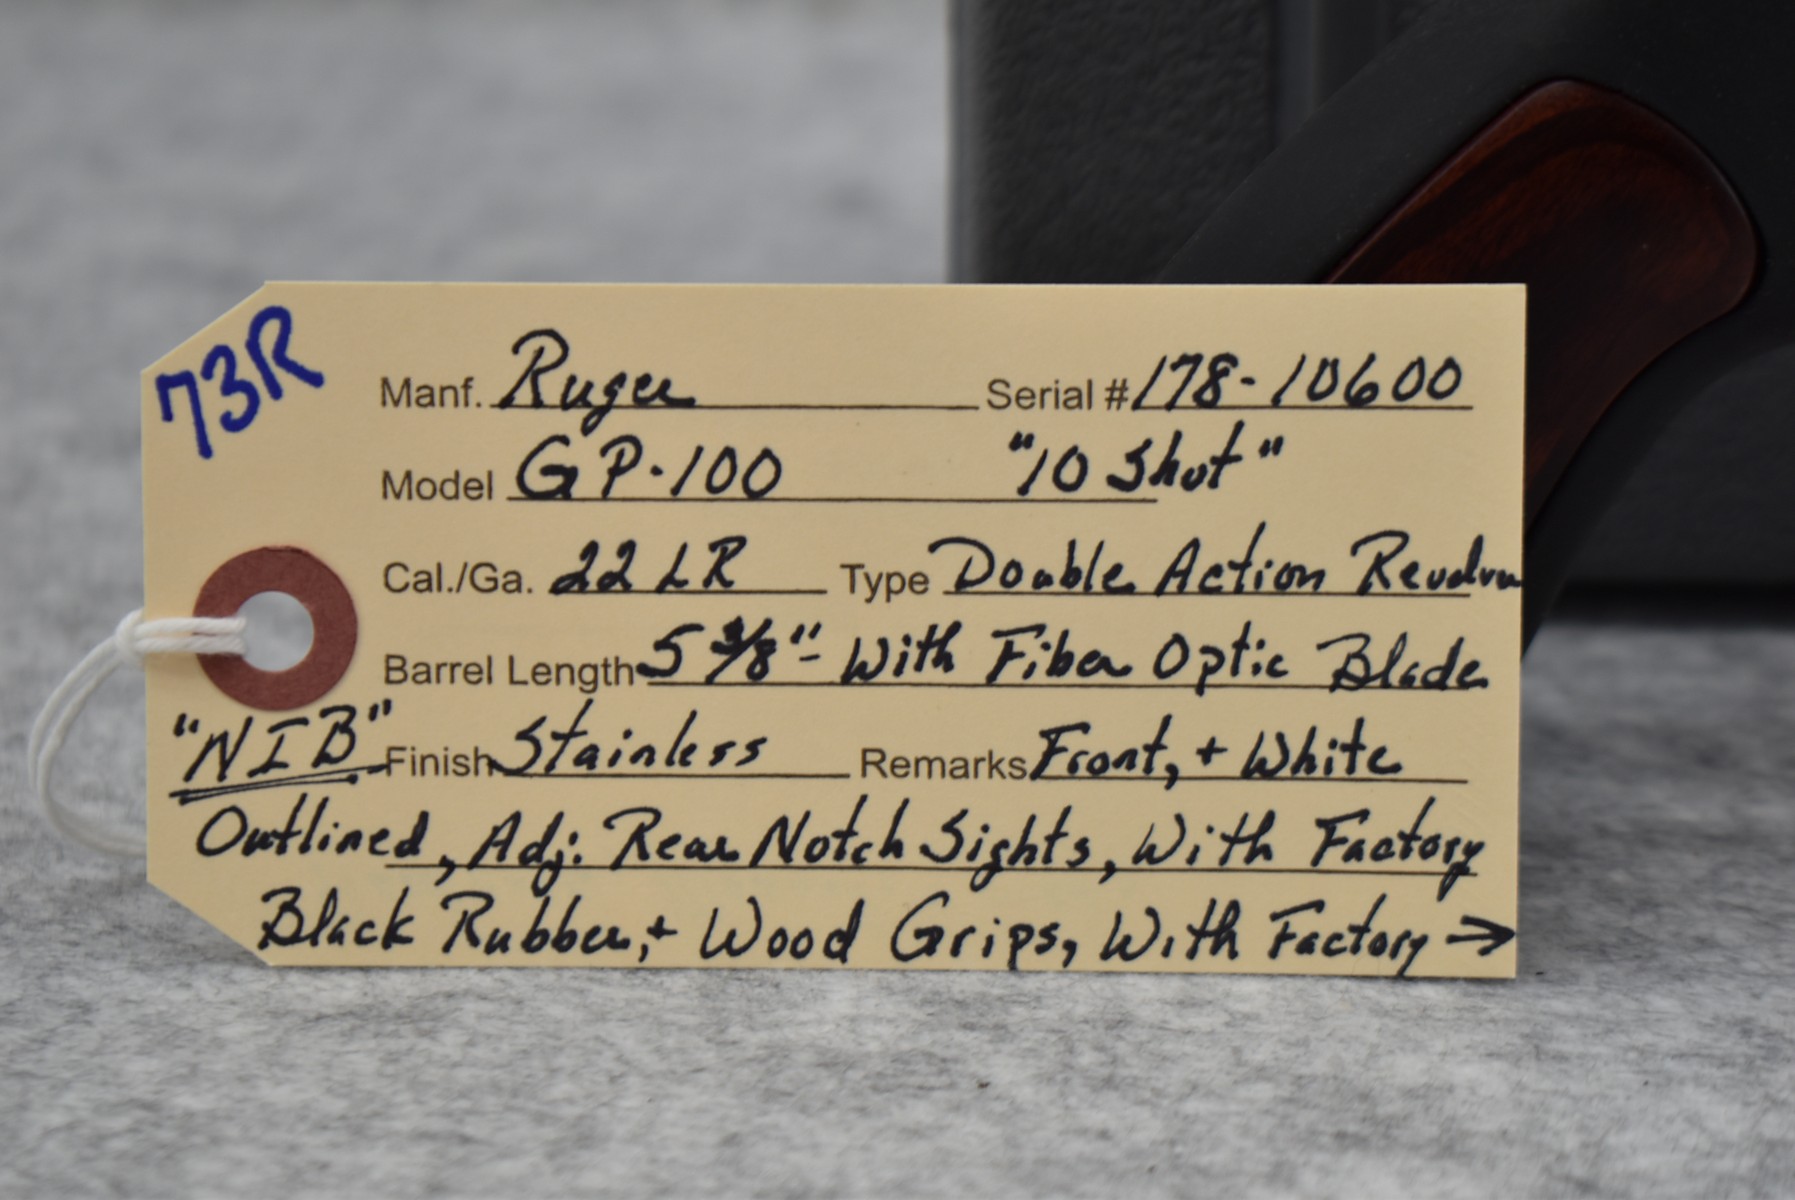 73R
Manf. Ruger Serial # 178-10600
Model GP-100 "10 Shot"
Cal./Ga. 22 LR Type Double Action Revolver
Barrel Length 5 3/8" - With Fiber Optic Blade
"NIB" Finish Stainless Remarks Front, + White
Outlined, Adj. Rear Notch Sights, With Factory
Black Rubber, + Wood Grips, With Factory →